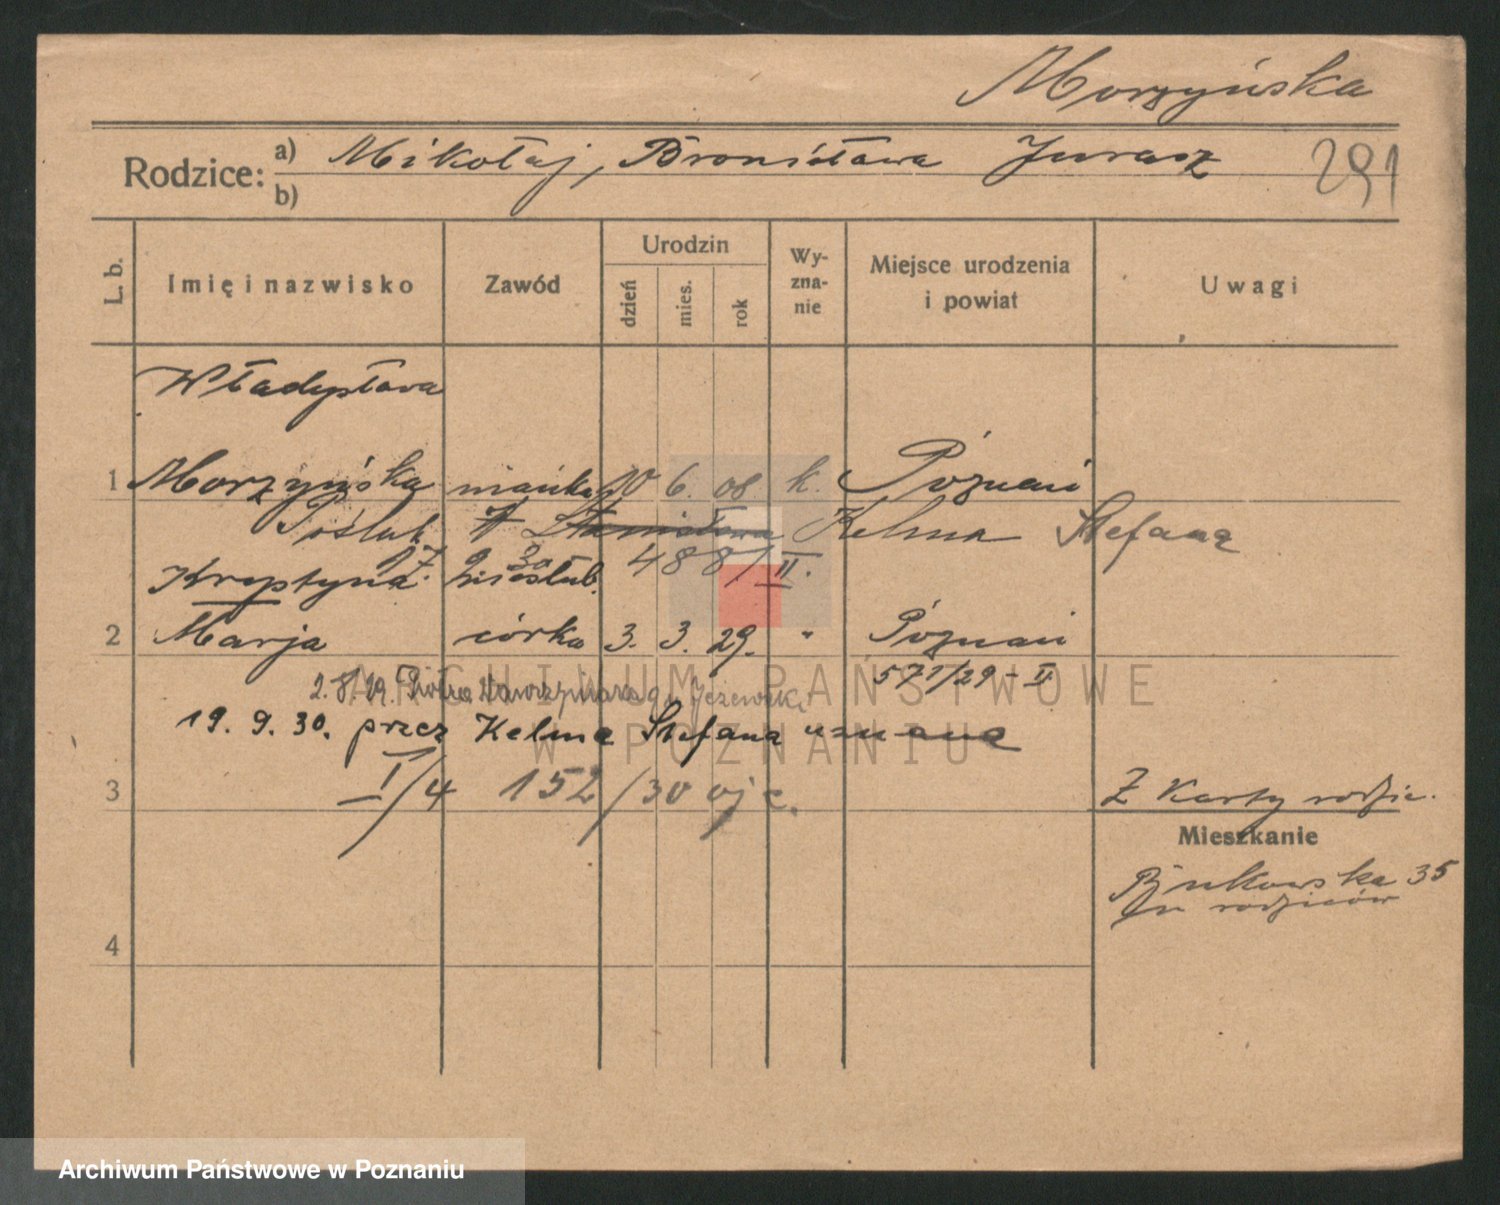 Morzyńska
Rodzice: a) Mikołaj, Bronisława Jurasz
b)
291
L. b.
Imię i nazwisko
Zawód
Urodzin
dzień
mies.
rok
Wy-
zna-
nie
Miejsce urodzenia
i powiat
Uwagi
Władysława
1 Morzyńska niańka 10 6. 08 k. Poznań
Poślub. Stanisława Kelma Stefana
488/II.
Krystyna nieślub.
2 Marja córka 3. 3. 29. " Poznań
571/29 - II
2. 8. 29.
19. 9. 30. przez Kelma Stefana uznana
3 I/4 152/30 ojc.
Z Karty rodzic.
Mieszkanie
Bukowska 35
u rodziców
4
ARCHIWUM PAŃSTWOWE
W POZNANIU
Archiwum Państwowe w Poznaniu